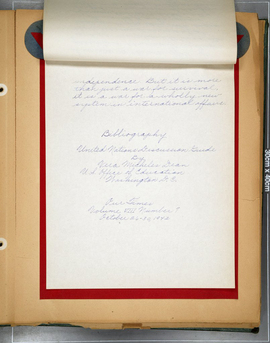 independence. But it is more
than just a war for survival.
It is a war for a wholly new
system in international affairs.
Bibliography
United Nations Discussion Guide
by
Vera Micheles Dean
U.S. Office of Education
Washington D.C.
Our Times
October 26-30, 1942
30cm x 40cm